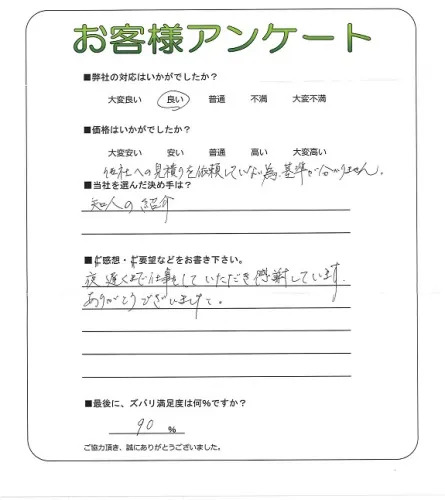 お客様アンケート
■弊社の対応はいかがでしたか？
大変良い 良い 普通 不満 大変不満
■価格はいかがでしたか？
大変安い 安い 普通 高い 大変高い
他社への見積りを依頼していない為、基準が分かりません。
■当社を選んだ決め手は？
知人の紹介
■ご感想・ご要望などをお書き下さい。
夜遅くまで仕事をしていただき感謝しています。
ありがとうございました。
■最後に、ズバリ満足度は何%ですか？
90 %
ご協力頂き、誠にありがとうございました。